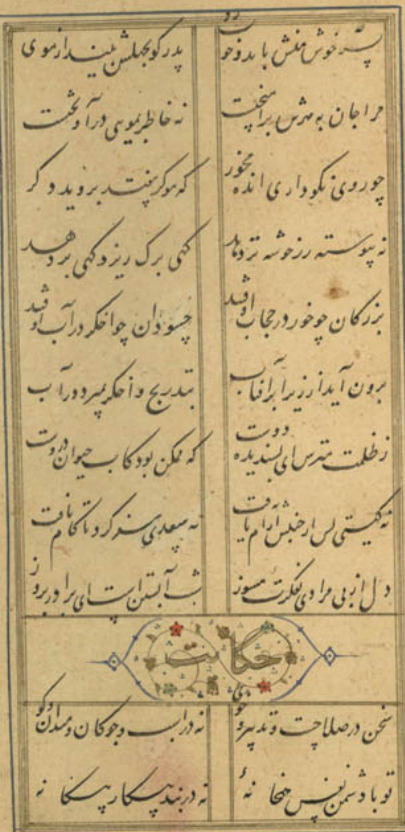 پسر خوش منش باید و خوبروی پدر گو بجهلش بینداز موی
مرا جان به مهرش برآمیختست نه خاطر بمویی درآویختست
چو روی نکو داری انده مخور که موی ار بیفتد بروید دگر
نه پیوسته رز خوشه تر دهد گهی برگ ریزد گهی بر دهد
بزرگان چو خور در حجاب اوفتند حسودان چو اخگر در آب اوفتند
برون آید از زیر ابر آفتاب بتدریج و اخگر بمیرد در آب
ز ظلمت مترس ای پسندیده دوست که ممکن بود کاب حیوان دروست
نه گیتی پس از جنبش آرام یافت نه سعدی سفر کرد تا کام یافت
دل از بی مرادی بفکرت مسوز شب آبستن است ای برادر بروز
حکایت
سخن در صلاحست و تدبیر و خوی نه در اسب و چوگان و میدان و گوی
تو با دشمن نفس همخانه نه در بند پیکار بیگانه